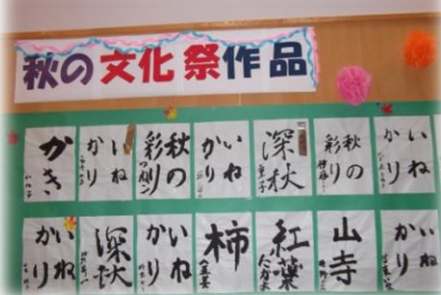 秋の文化祭作品
かき
いね
かり
秋の
彩り
いね
かり
深秋
秋の
彩り
いね
かり
いね
かり
深秋
いね
かり
柿
紅葉
山寺
いね
かり